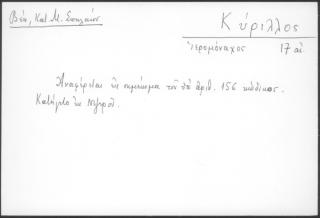 Βέη, Κατ. Μ. Σπηλαίου
Κύριλλος
Ἱερομόναχος 17 αἰ.
Ἀναφέρεται ἐς σημείωμα τοῦ ὑπ' ἀριθ. 156 κώδικος.
Κατήγετο ἐκ